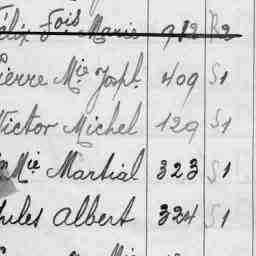 Félix Fois Maris 912 R2
Pierre Mie Joph. 409 S1
Victor Michel 129 S1
Mie Martial 323 S1
Jules Albert 324 S1